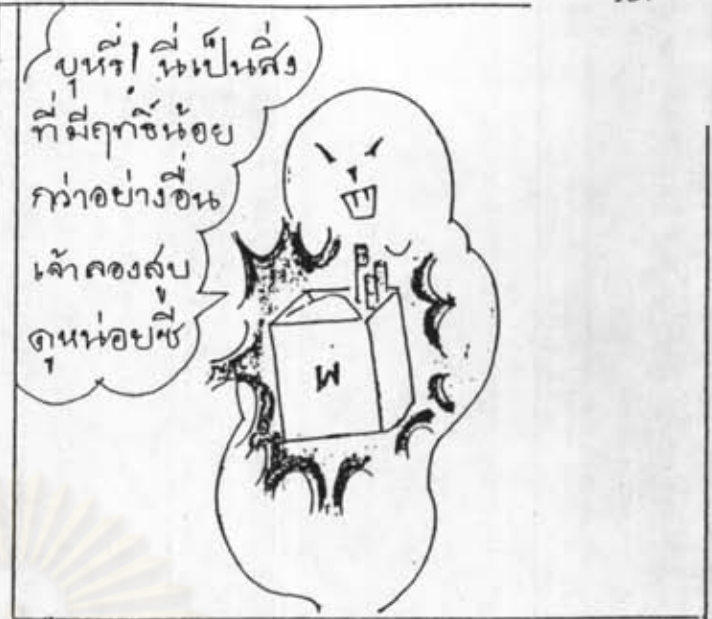 บุหรี่! นี่เป็นสิ่ง
ที่มีฤทธิ์น้อย
กว่าอย่างอื่น
เจ้าลองสูบ
ดูหน่อยซี
พ